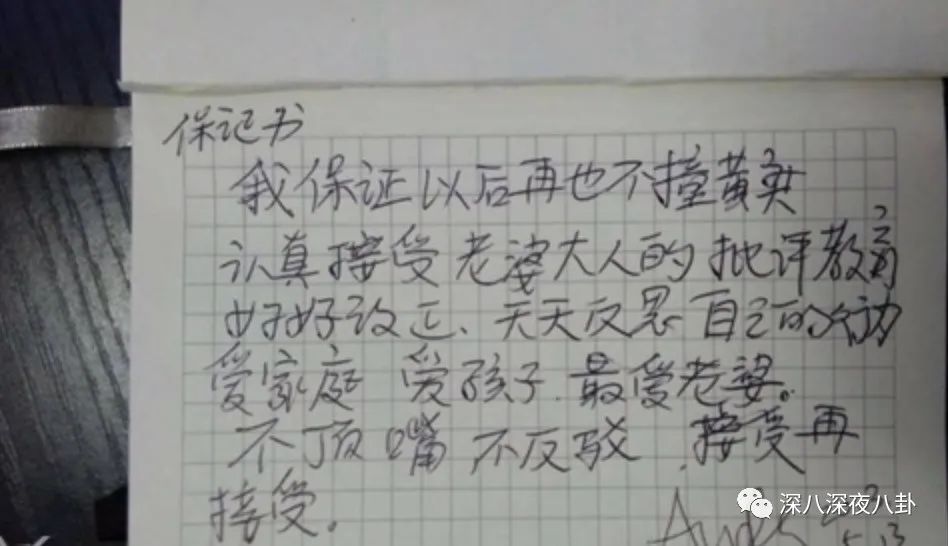 保证书
我保证以后再也不撞黄灯
认真接受老婆大人的批评教育
好好改正、天天反思自己的行为
爱家庭 爱孩子.最爱老婆。
不顶嘴 不反驳 接受再
接受。
Andy
5.13
深八深夜八卦